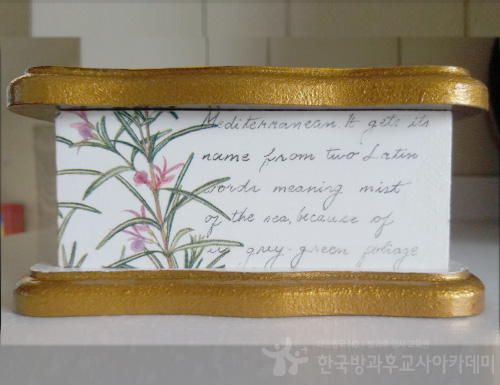 Mediterranean. It gets its
name from two Latin
words meaning mist
of the sea, because of
its grey-green foliage
한국방과후교사아카데미